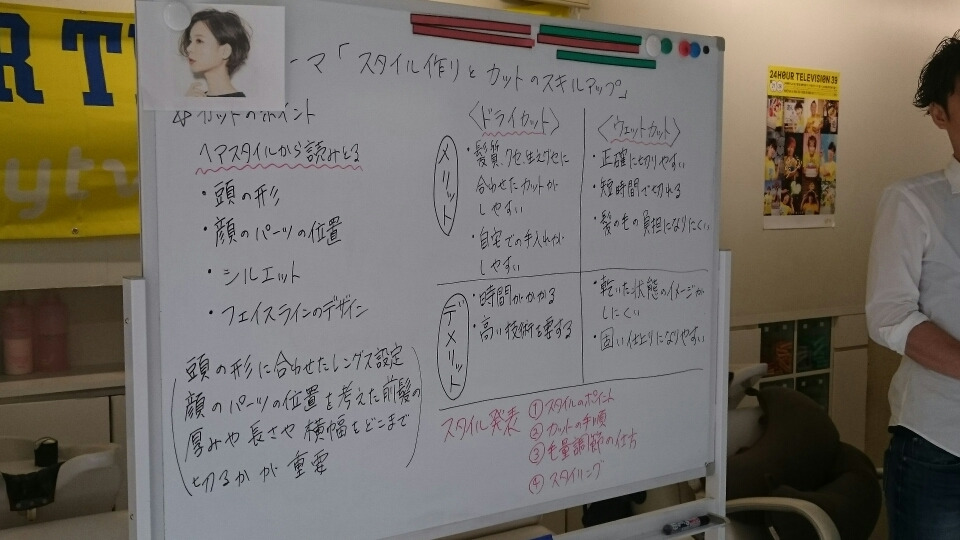 ーマ「スタイル作りとカットのスキルアップ」
カットのポイント
ヘアスタイルから読みとる
・頭の形
・顔のパーツの位置
・シルエット
・フェイスラインのデザイン
頭の形に合わせたレングス設定
顔のパーツの位置を考えた前髪の
厚みや長さや横幅をどこまで
切るかが重要
〈ドライカット〉
メリット
・髪質、クセ、生えグセに
合わせたカットが
しやすい
・自宅での手入れが
しやすい
〈ウェットカット〉
・正確に切りやすい
・短時間で切れる
・髪の毛の負担になりにくい
デメリット
・時間がかかる
・高い技術を要する
・乾いた状態のイメージが
しにくい
・固い仕上りになりやすい
スタイル発表
①スタイルのポイント
②カットの手順
③毛量調節の仕方
④スタイリング
24HOUR TELEVISION 39
R T
ytv